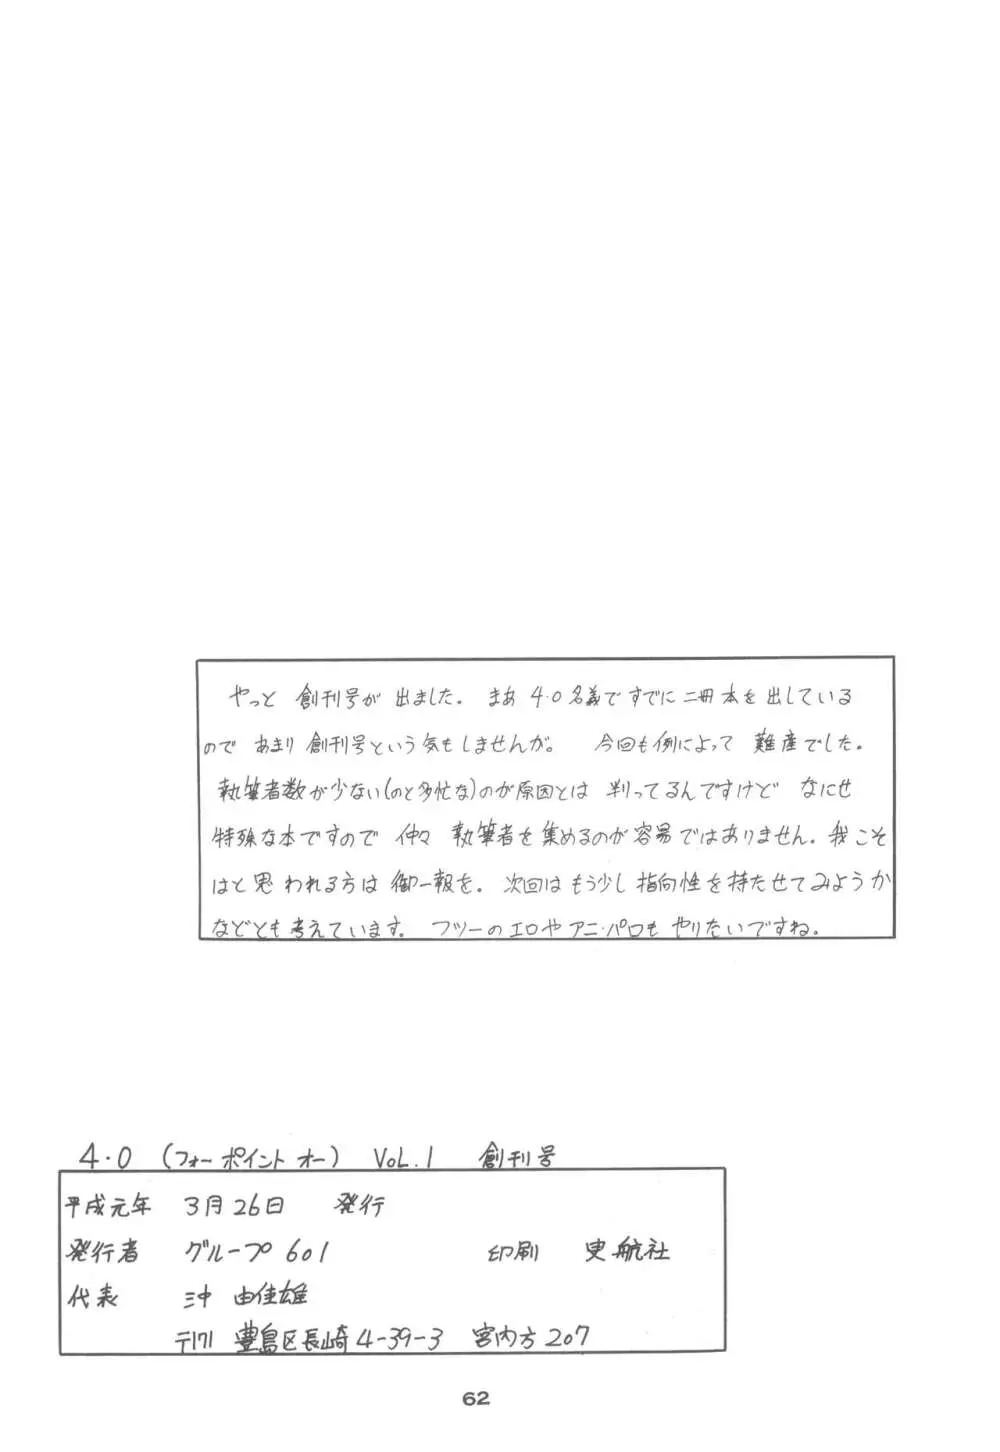 やっと 創刊号が 出ました。 まあ 4.0名義で すでに 二冊 本を 出している
ので あまり 創刊号という 気も しませんが。 今回も 例によって 難産でした。
執筆者数が少ない(のと多忙な)のが原因とは 判ってるんですけど なにせ
特殊な本ですので 仲々 執筆者を集めるのが容易ではありません。我こそ
はと思われる方は 御一報を。 次回は もう少し 指向性を持たせてみようか
などとも 考えています。 フツーのエロや アニ・パロも やりたいですね。
4.0 (フォー ポイント オー) VOL.1 創刊号
平成元年 3月26日 発行
発行者 グループ601 印刷 史航社
代表 沖 由佳雄
〒171 豊島区長崎4-39-3 宮内方207
62